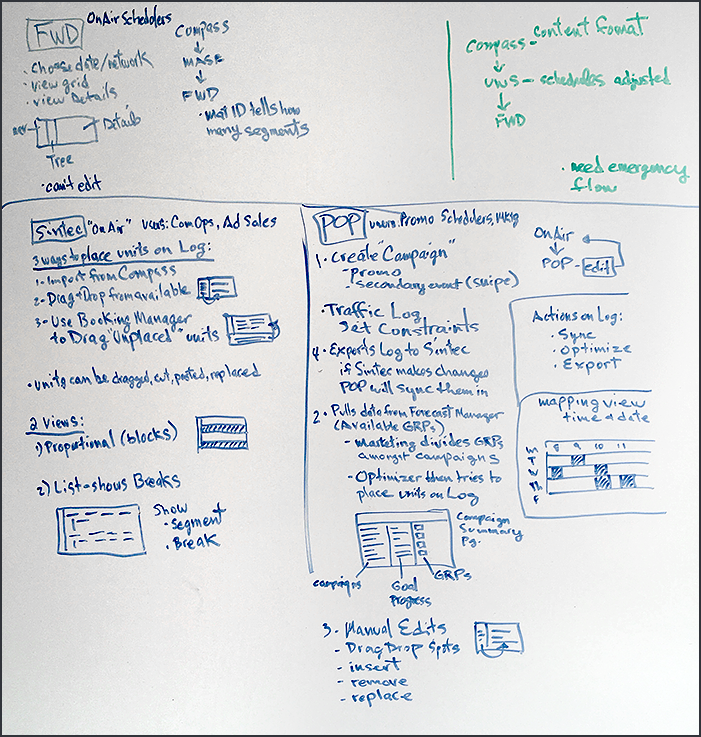 FWD
OnAir Schedulers
· choose date/network
· view grid
· view Details
Details
Tree
· can't edit
Compass
FWD
· Mat ID tells how
many segments
Compass - content format
- schedules adjusted
FWD
· need emergency
flow
Sintec "OnAir" users: ComOps, Ad Sales
3 ways to place units on Log:
1 - Import from Compass
2 - Drag + Drop from available
3 - Use Booking Manager
to Drag "Unplaced" units
· units can be dragged, cut, pasted, replaced
2 Views:
1) Proportional (blocks)
2) List - shows Breaks
Show
· segment
· Break
POP users: Promo Schedulers, Mktg
1 · Create "Campaign"
- promo
- secondary event (snipe)
· Traffic Log
Set Constraints
4 · Exports Log to Sintec
if Sintec makes changed
POP will sync them in
2 · Pulls data from Forecast Manager
(Available GRPs)
- marketing divides GRPs
amongst campaigns
- Optimizer then tries to
place units on Log
Campaign
Summary
Pg.
campaigns
Goal
Progress
GRPs
3 - Manual Edits
- Drag Drop Spots
- insert
- remove
- replace
OnAir
POP - edit
Actions on Log:
· Sync
· Optimize
· Export
mapping view
time + date
8 9 10 11
M
T
W
Th
F